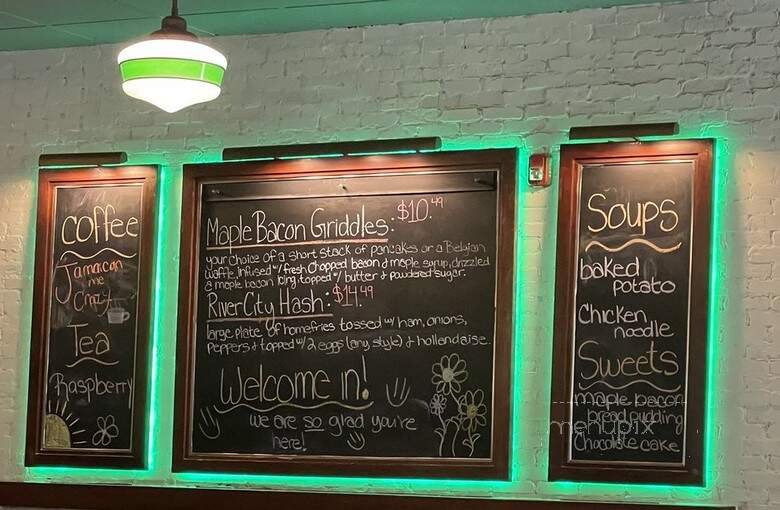 Coffee
Jamaican
me
Crazy
Tea
Raspberry
Maple Bacon Griddles: $10.49
your choice of a short stack of pancakes or a Belgian
waffle, infused w/ fresh chopped bacon & maple syrup, drizzled
a maple bacon icing, topped w/ butter & powdered sugar.
River City Hash: $14.49
large plate of homefries tossed w/ ham, onions,
peppers & topped w/ 2 eggs (any style) & hollendaise.
Welcome in!
we are so glad you're
here!
Soups
baked
potato
Chicken
noodle
Sweets
maple bacon
bread pudding
Chocolate cake
menupix